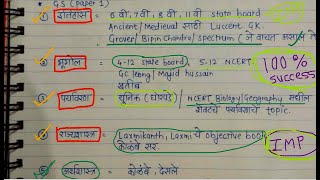 GS (paper 1)
① इतिहास 6 वी, 7 वी, 8 वी, 11 वी state board
Ancient/Medieval साठी Lucent GK.
Grover/ Bipin Chandra/ spectrum (जे वाचत असाल ते
② भूगोल 4-12 state board, 5-12 NCERT.
GC Leong/ Majid hussain
सवदी
100%
SUCCESS
③ पर्यावरण युनिक (घोरपडे) / NCERT Biology/Geography मधील
शेवटचे पर्यावरणाचे topic.
④ राज्यशास्त्र Laxmikanth, Laxmi चे objective book
कोळंबे सर.
IMP
⑤ अर्थशास्त्र कोळंबे, देसले